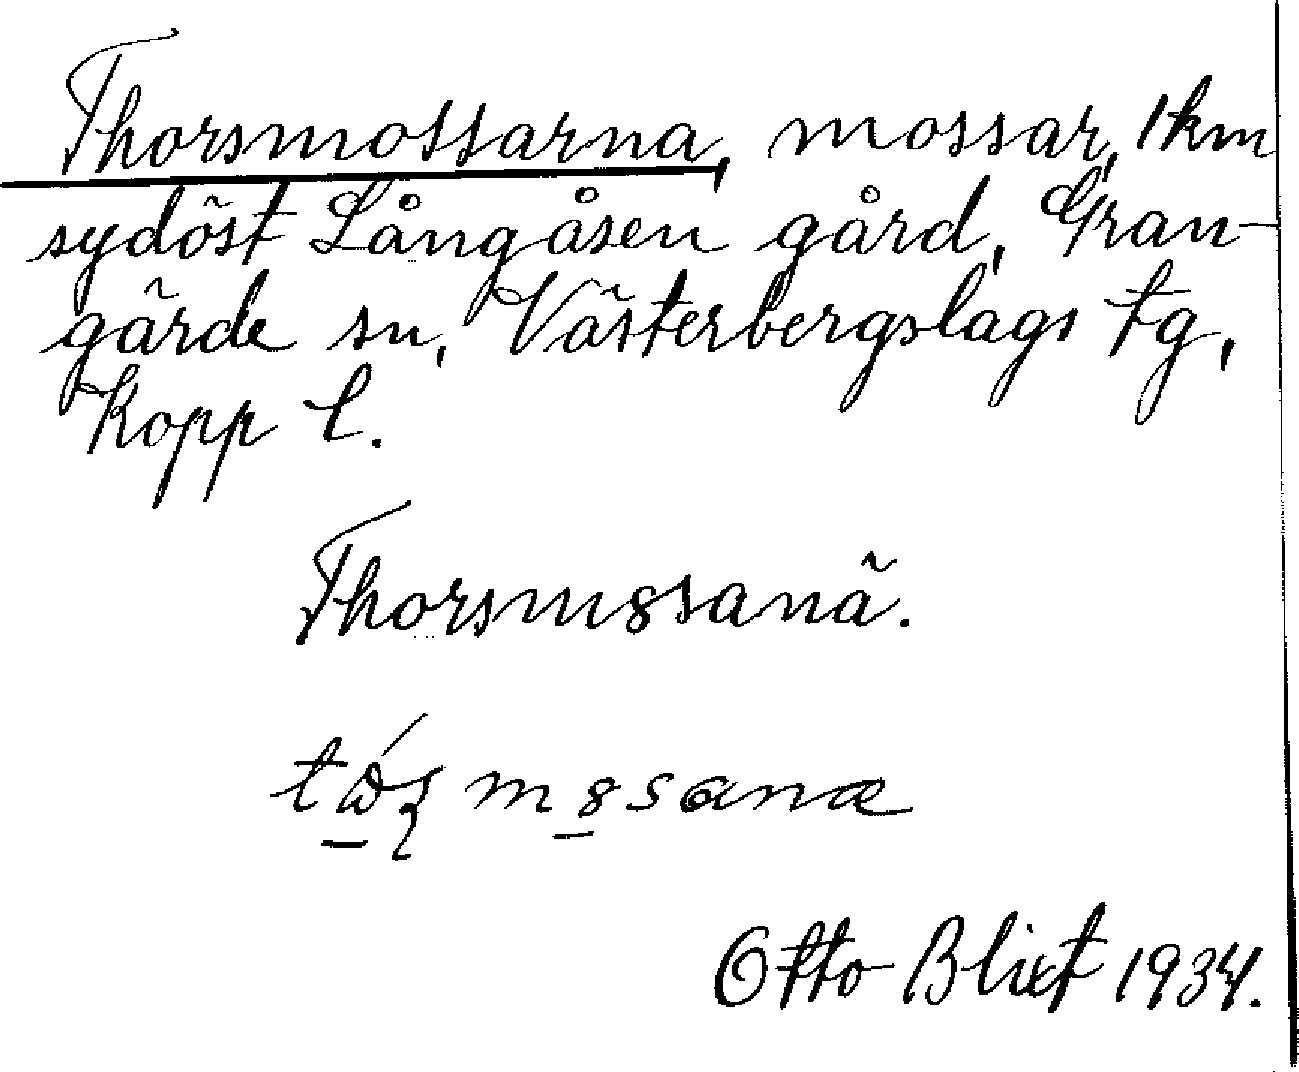 Thorsmossarna, mossar, 1 km
sydöst Långåsen gård, Gran-
gärde sn, Västerbergslags tg,
Kopp l.
Thorsm8sanä.
Otto Blixt 1934.